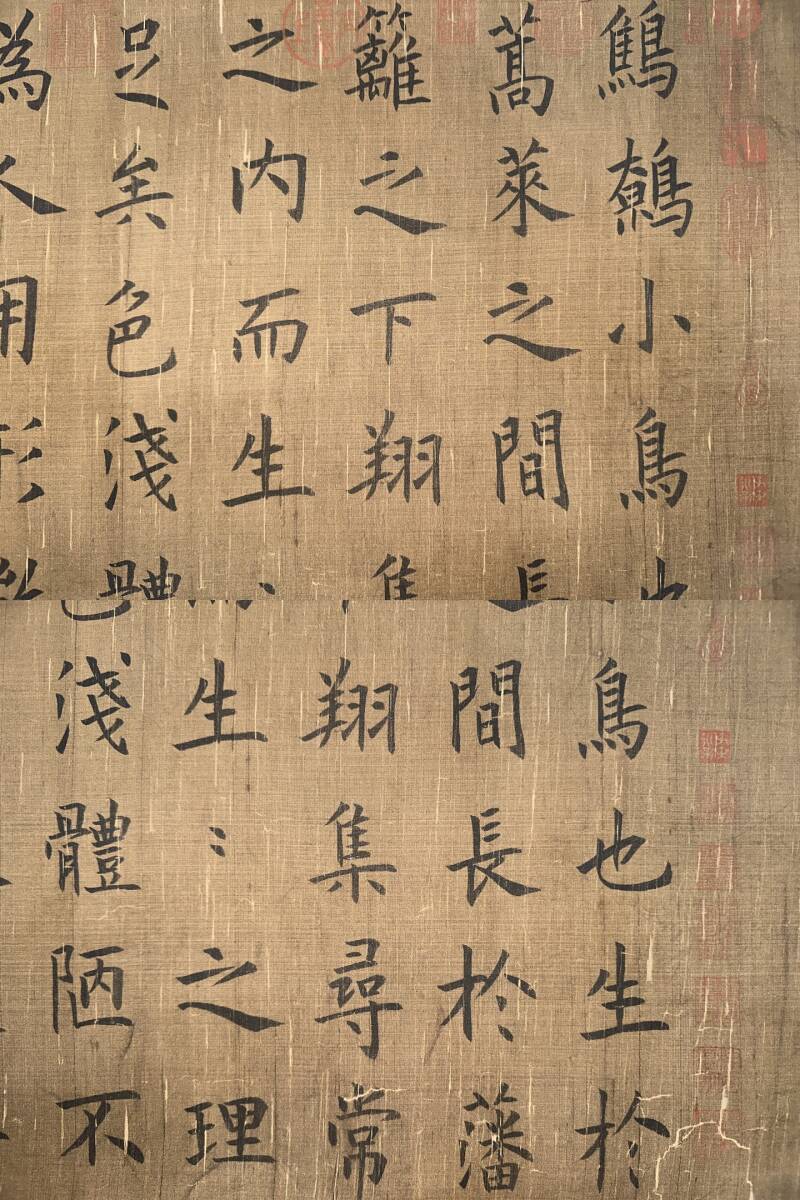 鷦鷯小鳥也生於
蒿萊之間長於藩
籬之下翔集尋常
之内而生〻之理
足矣色淺體陋不
為人用形